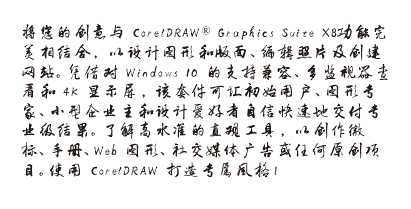 将您的创意与 CorelDRAW® Graphics Suite X8功能完
美相结合，以设计图形和版面、编辑照片及创建
网站。凭借对 Windows 10 的支持兼容、多监视器查
看和 4K 显示屏，该套件可让初始用户、图形专
家、小型企业主和设计爱好者自信快速地交付专
业级结果。了解高水准的直观工具，以创作徽
标、手册、Web 图形、社交媒体广告或任何原创项
目。使用 CorelDRAW 打造专属风格！